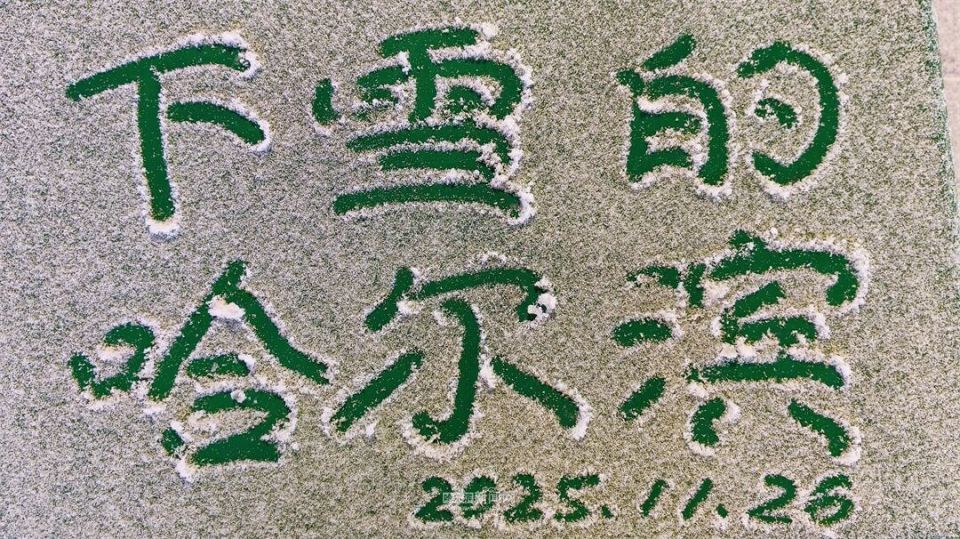 下雪的
哈尔滨
2025.11.26